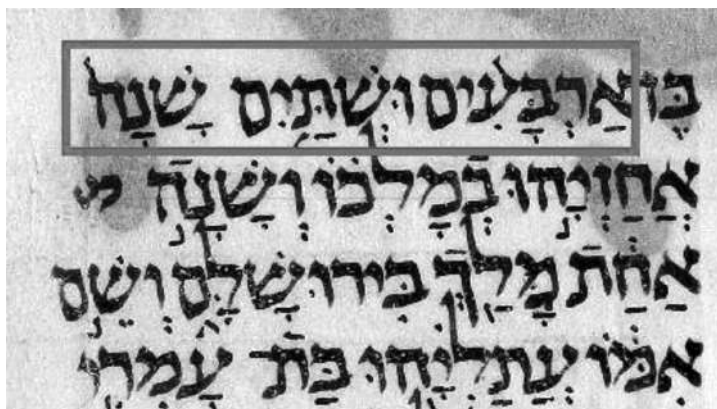 בֶּן אַרְבָּעִים וּשְׁתַּיִם שָׁנָה
אֲחַזְיָהוּ בְמָלְכוֹ וְשָׁנָה
אַחַת מָלַךְ בִּירוּשָׁלִַם וְשֵׁם
אִמּוֹ עֲתַלְיָהוּ בַּת־ עָמְרִי